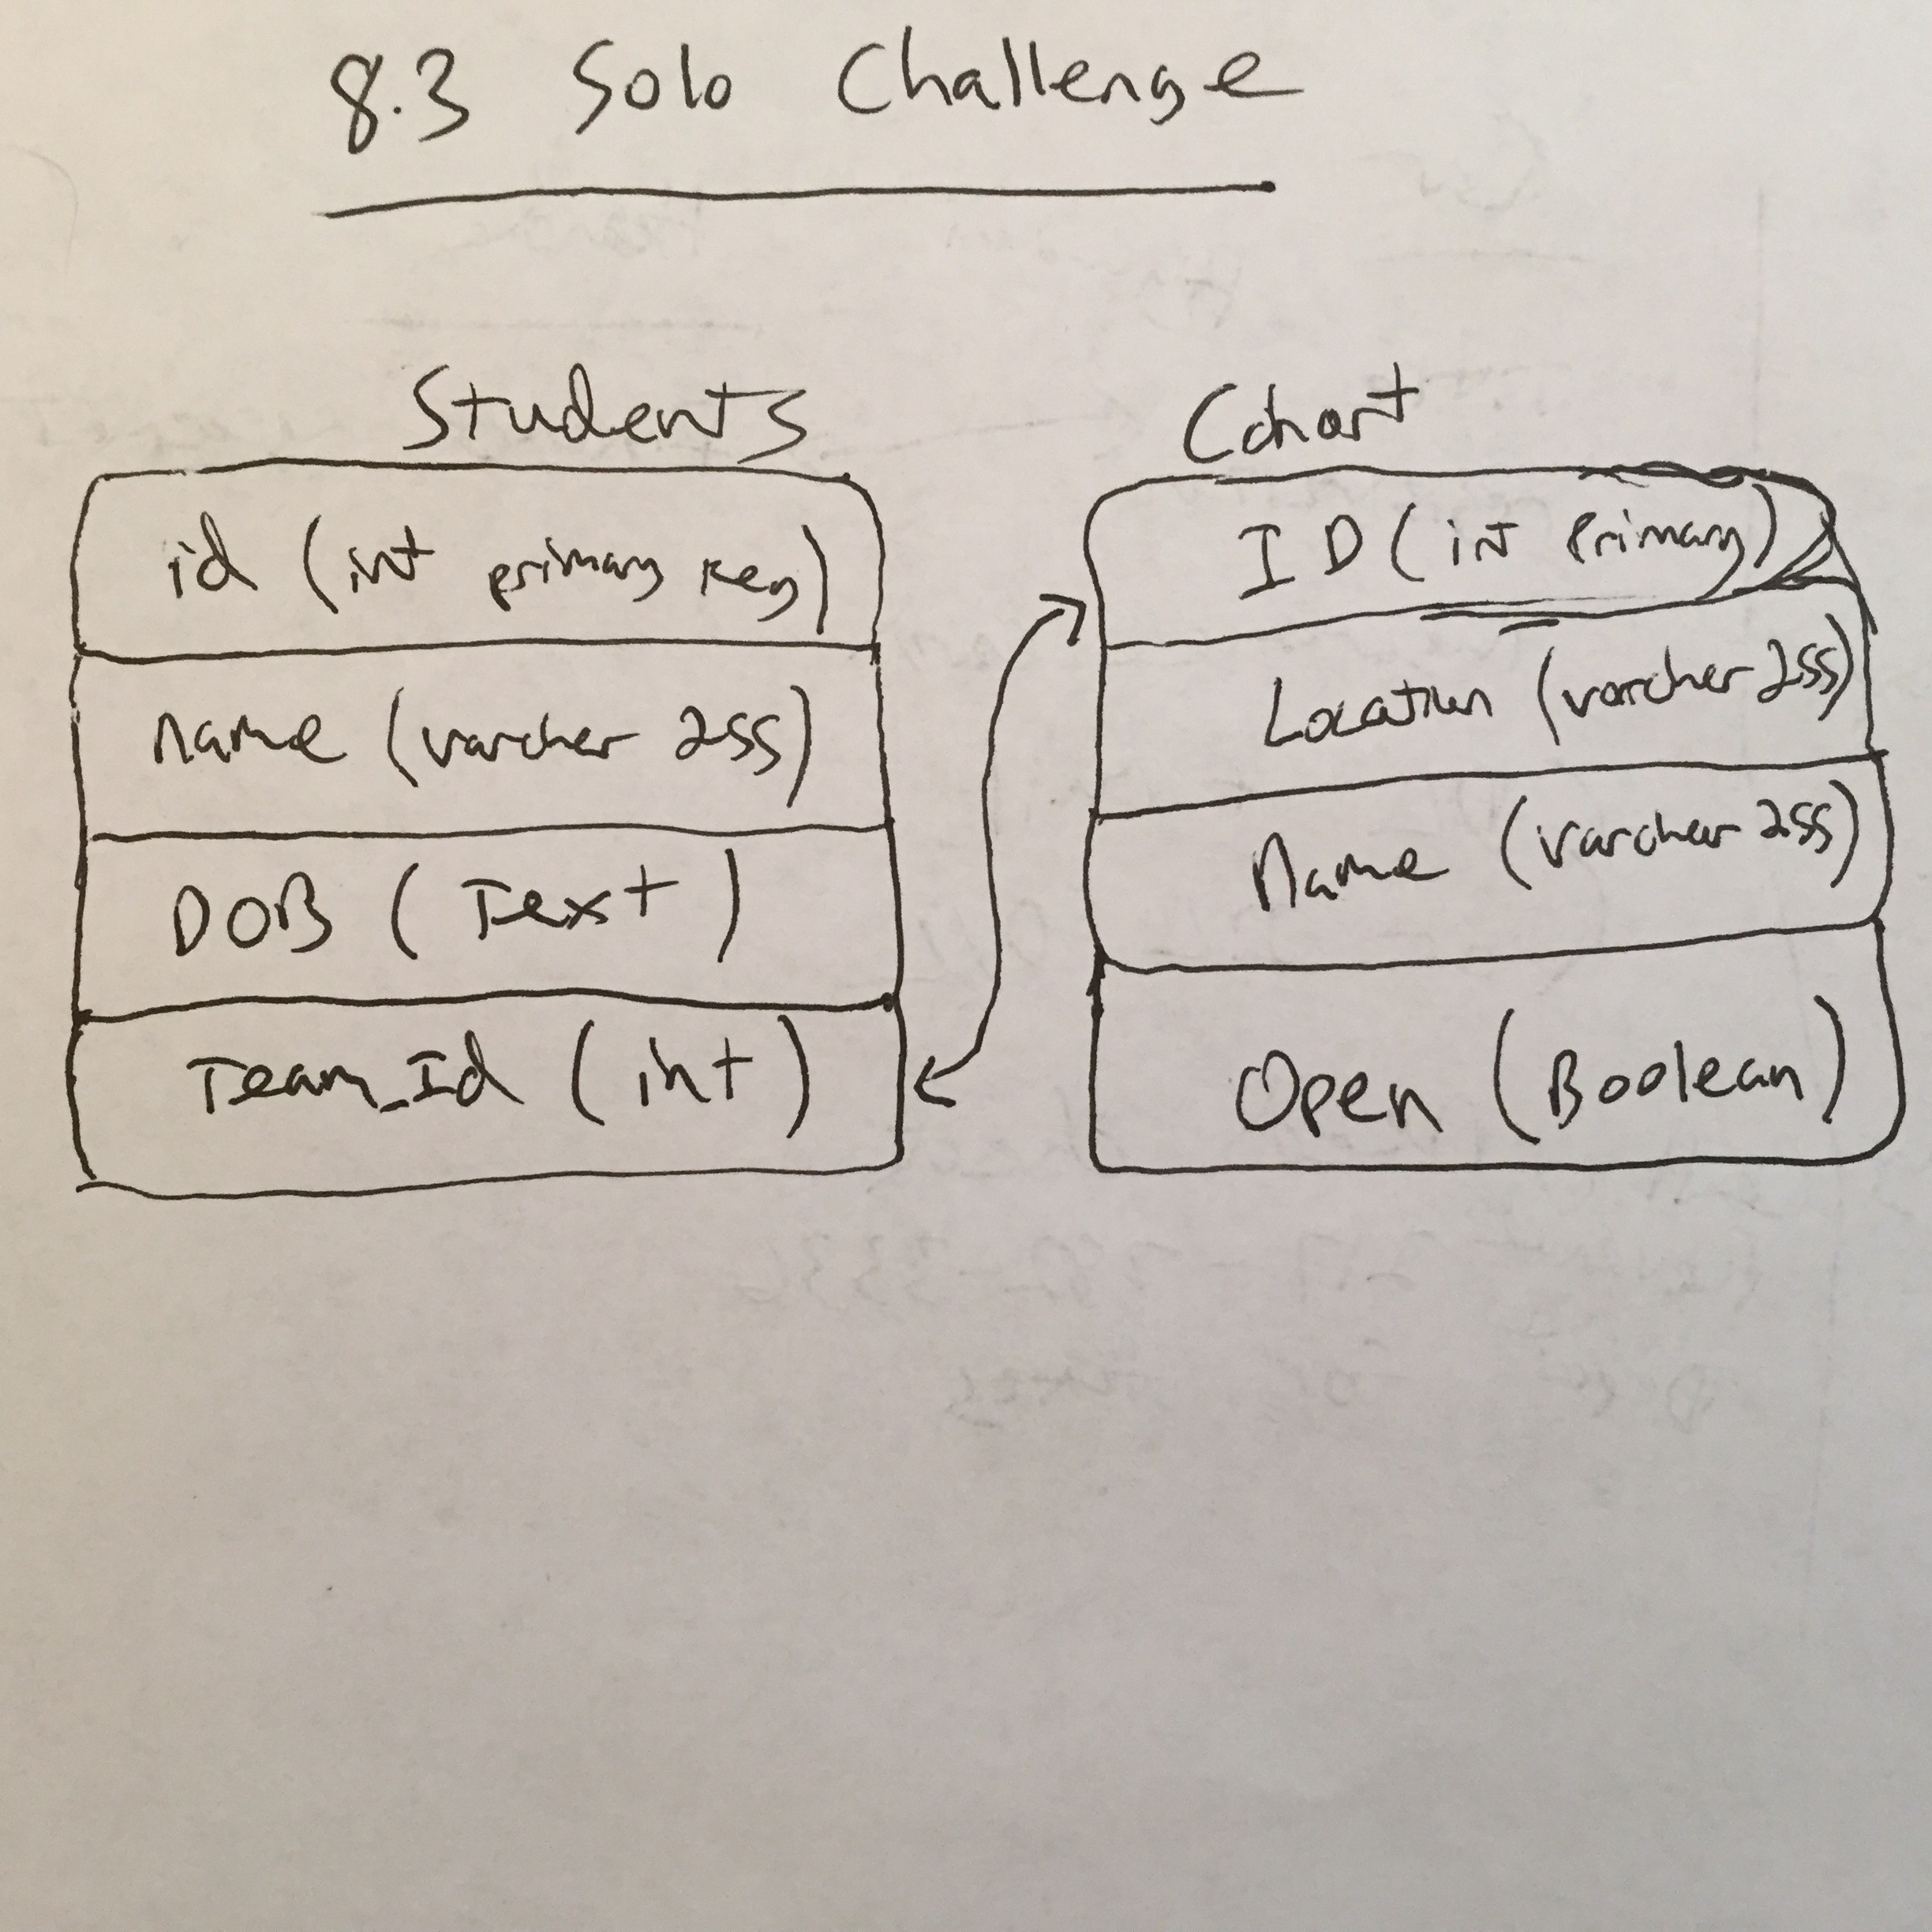 8.3 Solo Challenge
Students
id (int primary key)
name (varcher 255)
DOB (Text)
Team_Id (int)
Cohort
ID (int Primary)
Location (varcher 255)
Name (varchar 255)
Open (Boolean)